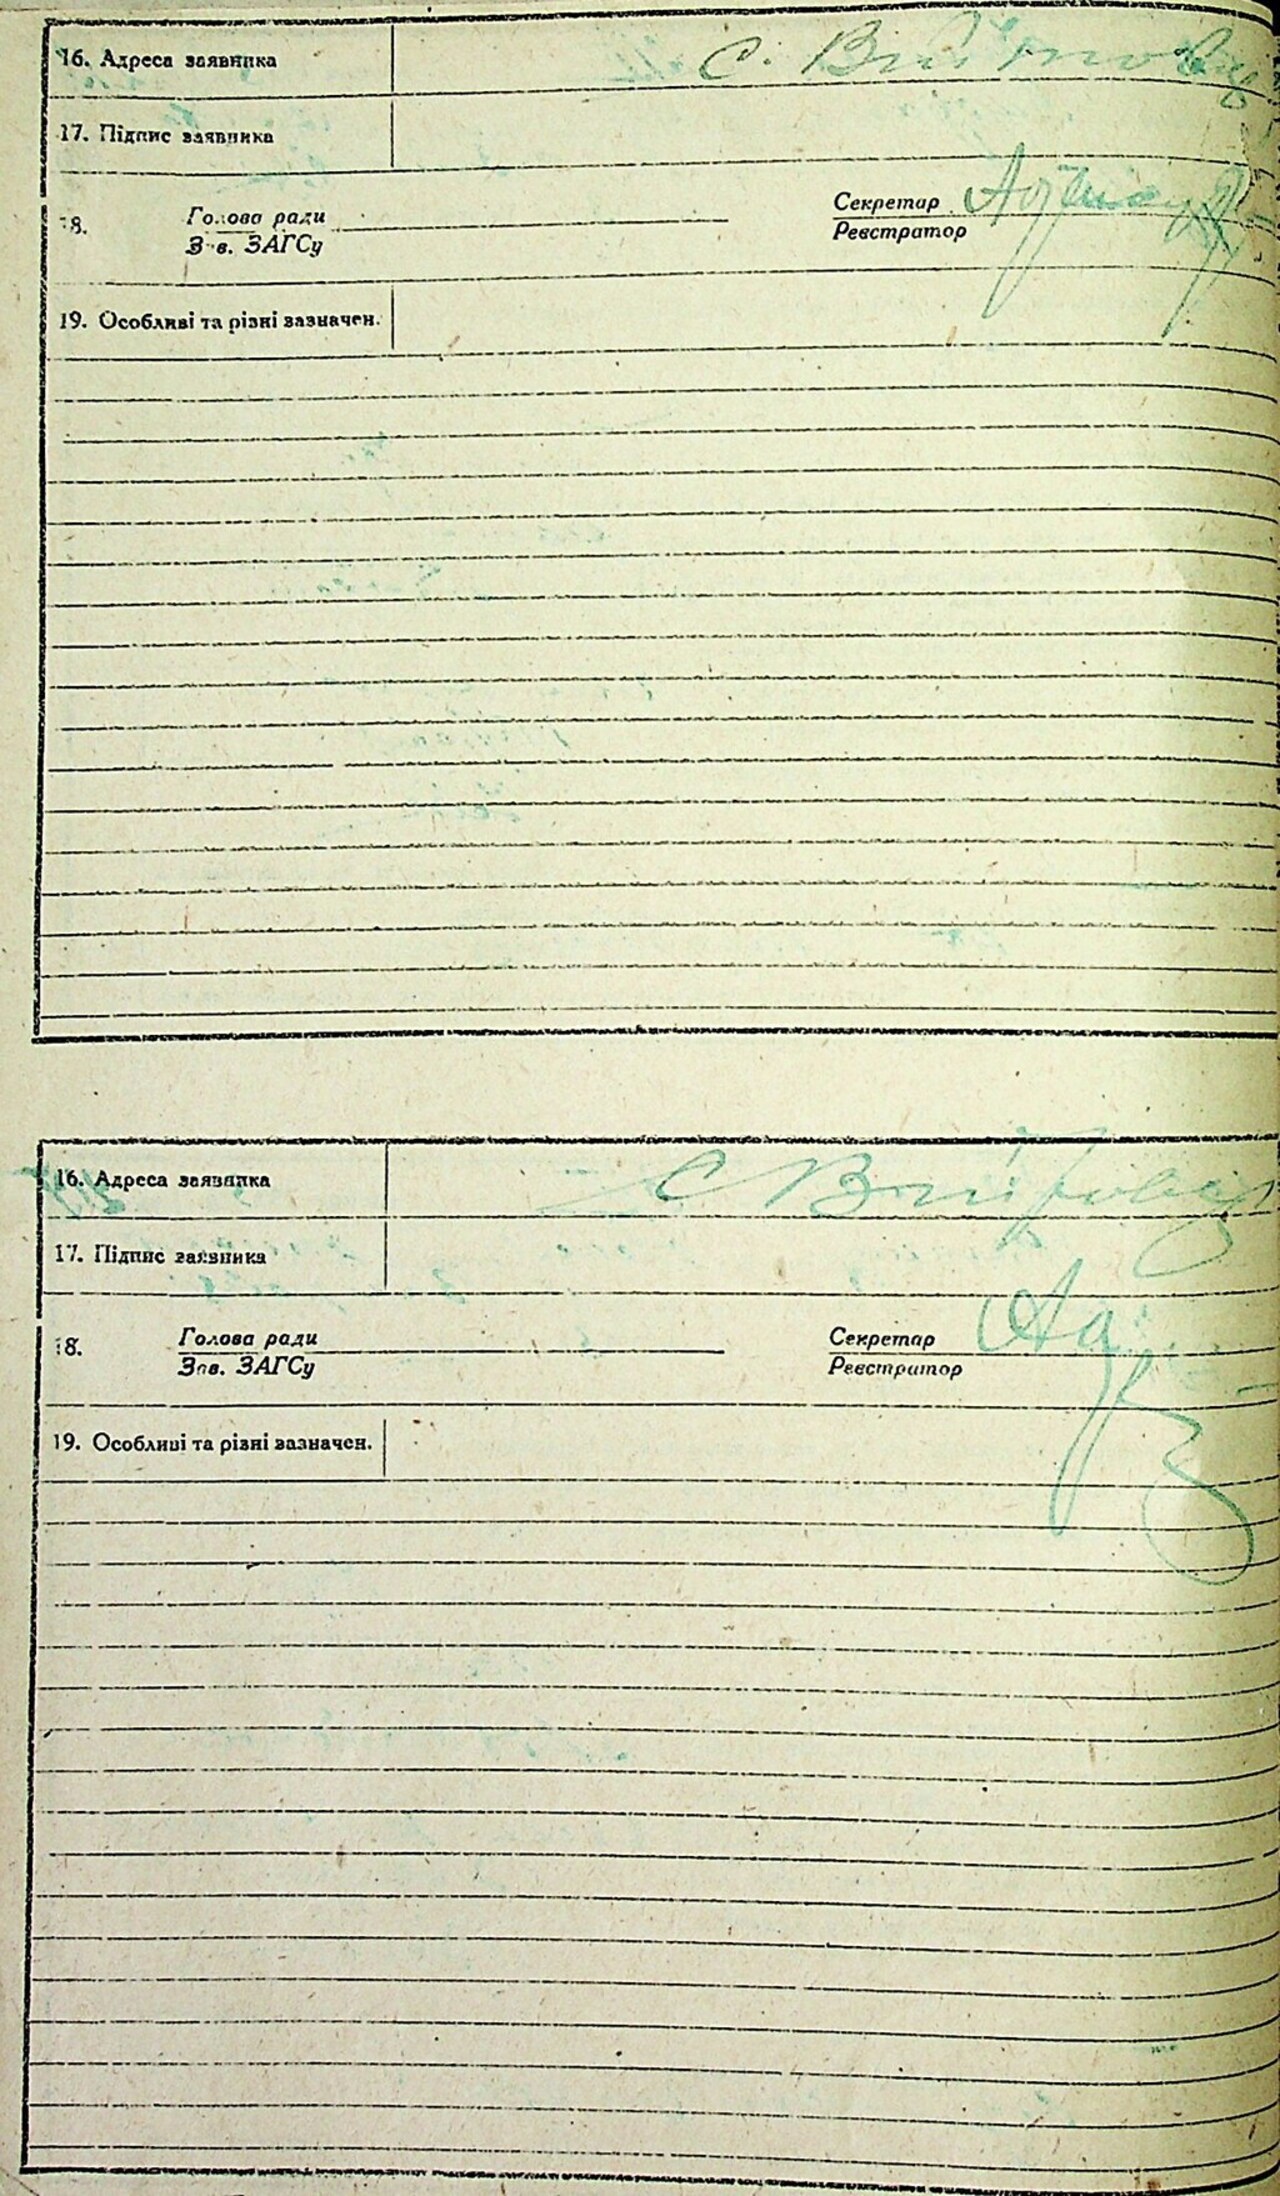 16. Адреса заявника с.
17. Підпис заявника
18. Голова ради Секретар
Зав. ЗАГСу Реєстратор
19. Особливі та різні зазначен.
16. Адреса заявника С
17. Підпис заявника
18. Голова ради Секретар
Зав. ЗАГСу Реєстратор
19. Особливі та різні зазначен.